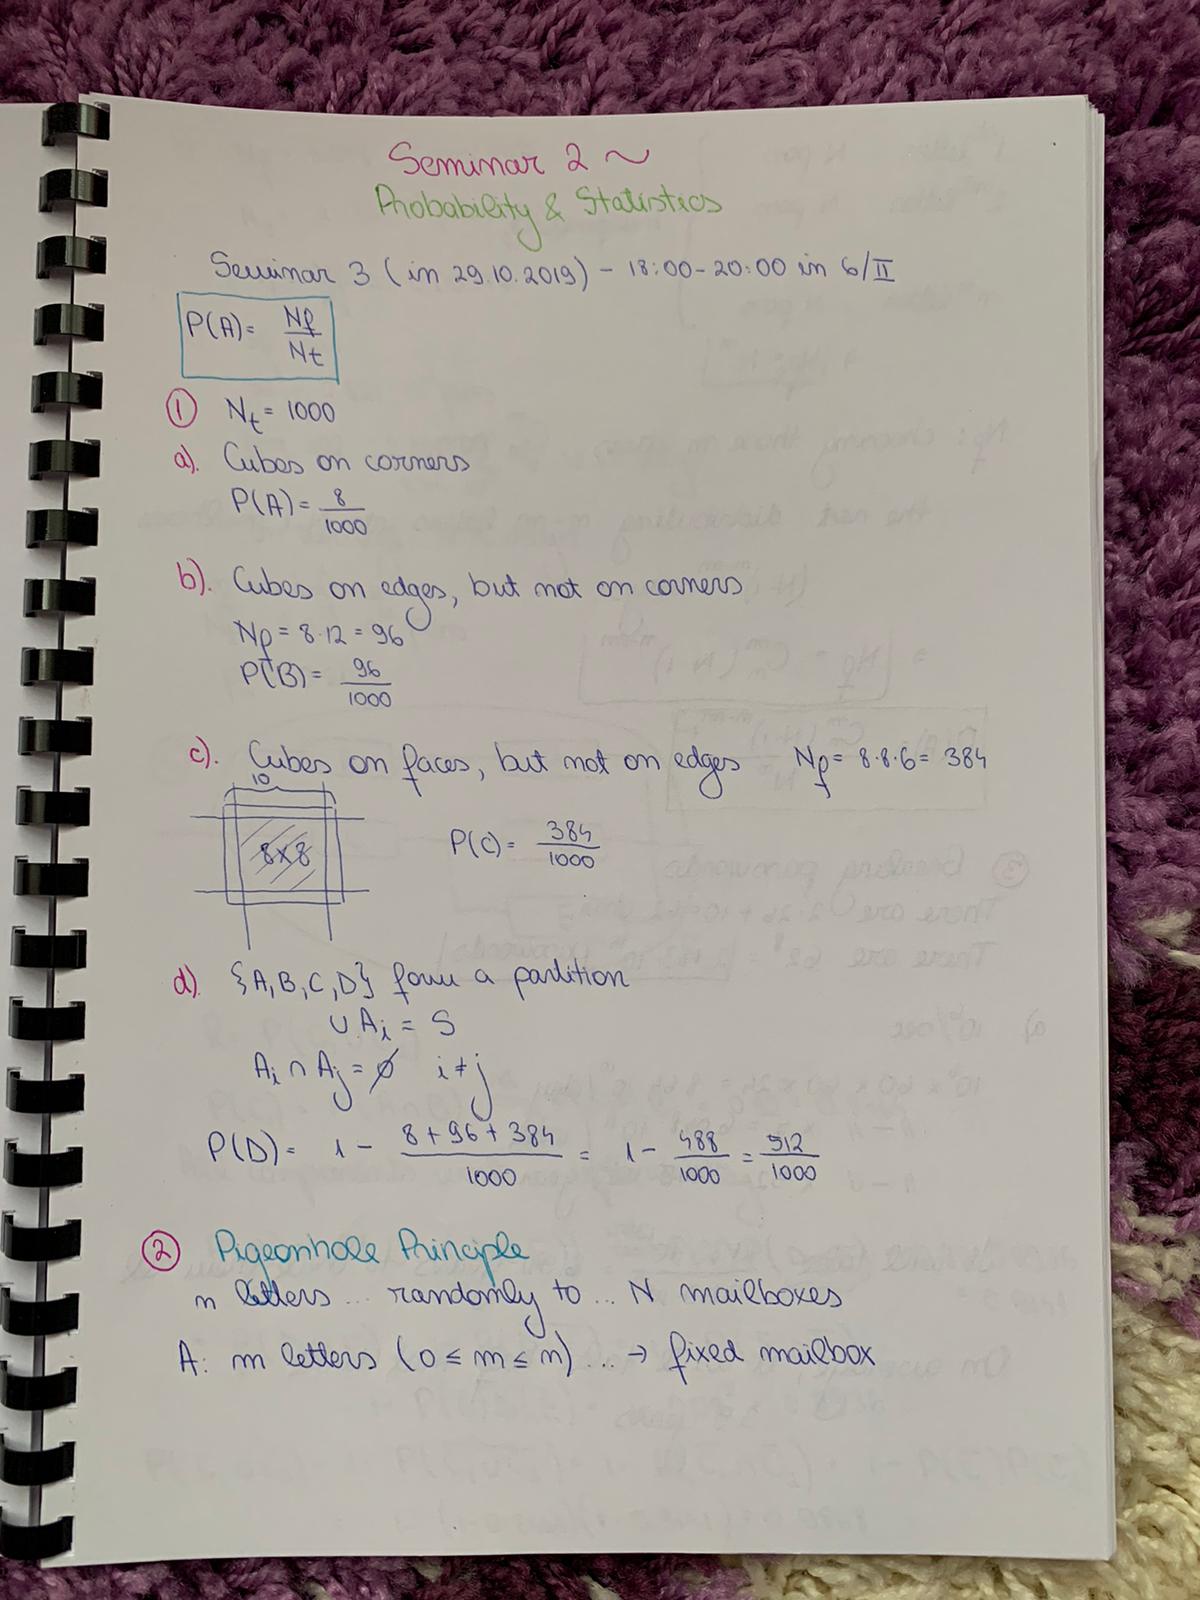 Seminar 2 ~
Probability & Statistics
Seminar 3 (in 29.10.2019) - 18:00-20:00 in 6/II
P(A) = Nf / Nt
① Nt = 1000
a). Cubes on corners
P(A) = 8/1000
b). Cubes on edges, but not on corners
Nf = 8·12 = 96
P(B) = 96/1000
c). Cubes on faces, but not on edges Nf = 8·8·6 = 384
10
8x8
P(C) = 384/1000
d). {A, B, C, D} form a partition
∪Ai = S
Ai ∩ Aj = ∅ i ≠ j
P(D) = 1 - (8 + 96 + 384)/1000 = 1 - 488/1000 = 512/1000
② Pigeonhole Principle
n letters ... randomly to ... N mailboxes
A: m letters (0 ≤ m ≤ n) ... → fixed mailbox